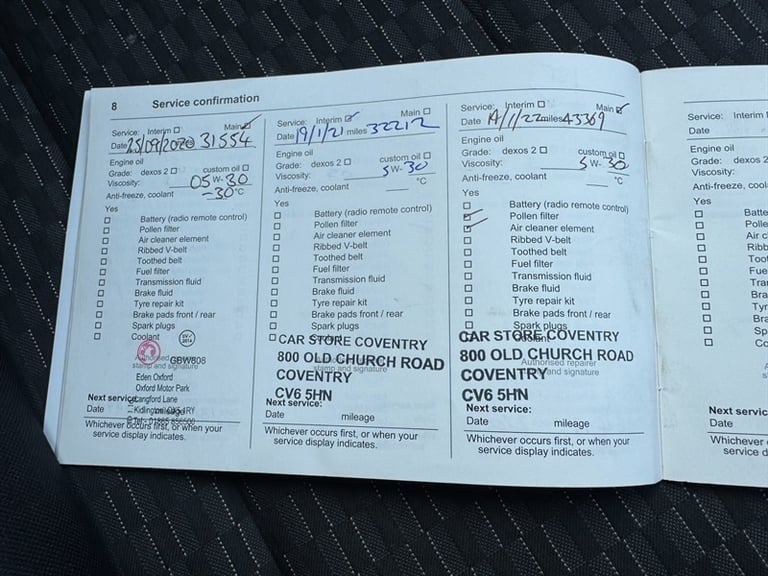 8 Service confirmation
Service: Interim Main
Date 25/09/2020 miles 31554
Engine oil
Grade: dexos 2 custom oil
Viscosity: 05 W-30
Anti-freeze, coolant -30 °C
Yes
Battery (radio remote control)
Pollen filter
Air cleaner element
Ribbed V-belt
Toothed belt
Fuel filter
Transmission fluid
Brake fluid
Tyre repair kit
Brake pads front / rear
Spark plugs
Coolant
GBW808
stamp and signature
Eden Oxford
Oxford Motor Park
Langford Lane
Kidlington OX5 1RY
Next service:
Date mileage
Whichever occurs first, or when your
service display indicates.
Service: Interim Main
Date 19/1/21 miles 32212
Engine oil
Grade: dexos 2 custom oil
Viscosity: 5 W-30
Anti-freeze, coolant °C
Yes
Battery (radio remote control)
Pollen filter
Air cleaner element
Ribbed V-belt
Toothed belt
Fuel filter
Transmission fluid
Brake fluid
Tyre repair kit
Brake pads front / rear
Spark plugs
Coolant
CAR STORE COVENTRY
800 OLD CHURCH ROAD
stamp and signature
COVENTRY
CV6 5HN
Next service:
Date mileage
Whichever occurs first, or when your
service display indicates.
Service: Interim Main
Date /1/22 miles 43369
Engine oil
Grade: dexos 2 custom oil
Viscosity: 5 W-30
Anti-freeze, coolant °C
Yes
Battery (radio remote control)
Pollen filter
Air cleaner element
Ribbed V-belt
Toothed belt
Fuel filter
Transmission fluid
Brake fluid
Tyre repair kit
Brake pads front / rear
Spark plugs
Coolant
CAR STORE COVENTRY
800 OLD CHURCH ROAD
Authorised repairer
stamp and signature
COVENTRY
CV6 5HN
Next service:
Date mileage
Whichever occurs first, or when your
service display indicates.
Service: Interim
Date
Engine oil
Grade: dexos 2
Viscosity:
Anti-freeze, coolant
Yes
Batte
Polle
Air c
Ribb
Toot
Fue
Tra
Bra
Tyr
Bra
Sp
Co
Next servic
Date
Whichever
service d